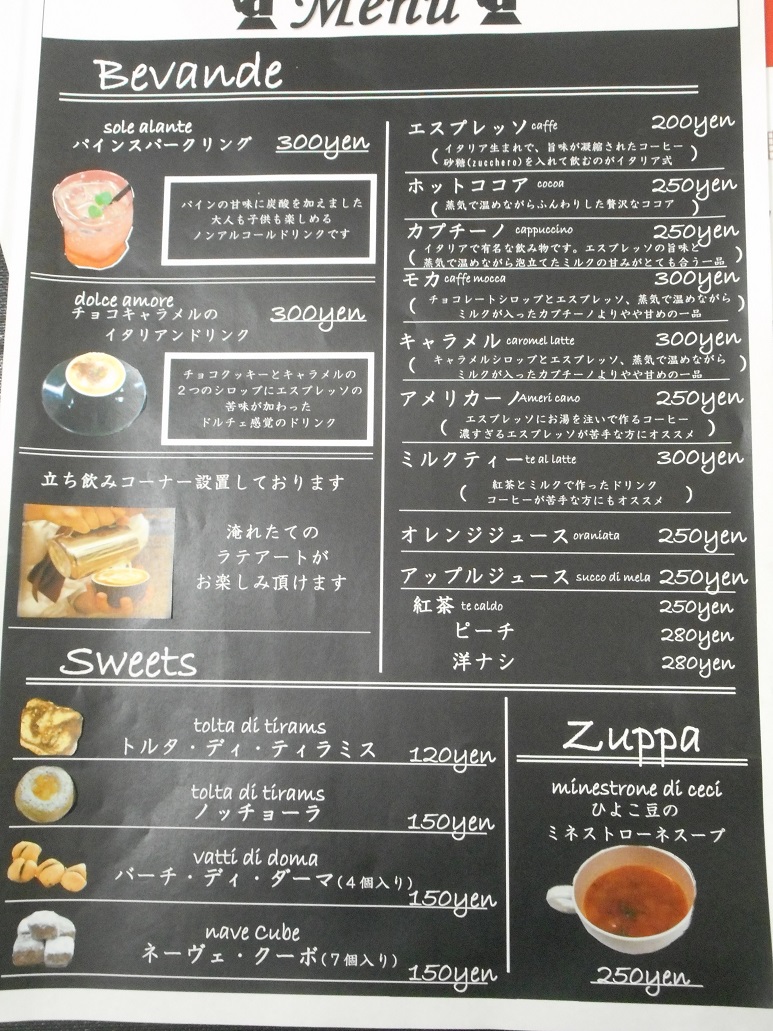 Menu
Bevande
sole alante
パインスパークリング 300yen
パインの甘味に炭酸を加えました
大人も子供も楽しめる
ノンアルコールドリンクです
dolce amore
チョコキャラメルの 300yen
イタリアンドリンク
チョコクッキーとキャラメルの
２つのシロップにエスプレッソの
苦味が加わった
ドルチェ感覚のドリンク
立ち飲みコーナー設置しております
淹れたての
ラテアートが
お楽しみ頂けます
エスプレッソ caffe 200yen
(イタリア生まれで、旨味が凝縮されたコーヒー
砂糖(zucchero)を入れて飲むのがイタリア式)
ホットココア cocoa 250yen
(蒸気で温めながらふんわりした贅沢なココア)
カプチーノ cappuccino 250yen
(イタリアで有名な飲み物です。エスプレッソの旨味と
蒸気で温めながら泡立てたミルクの甘みがとても合う一品)
モカ caffe mocca 300yen
(チョコレートシロップとエスプレッソ、蒸気で温めながら
ミルクが入ったカプチーノよりやや甘めの一品)
キャラメル caromel latte 300yen
(キャラメルシロップとエスプレッソ、蒸気で温めながら
ミルクが入ったカプチーノよりやや甘めの一品)
アメリカーノ Ameri cano 250yen
(エスプレッソにお湯を注いで作るコーヒー
濃すぎるエスプレッソが苦手な方にオススメ)
ミルクティー te al latte 300yen
(紅茶とミルクで作ったドリンク
コーヒーが苦手な方にもオススメ)
オレンジジュース oraniata 250yen
アップルジュース succo di mela 250yen
紅茶 te caldo 250yen
ピーチ 280yen
洋ナシ 280yen
Sweets
tolta di tirams
トルタ・ディ・ティラミス 120yen
tolta di tirams
ノッチョーラ 150yen
vatti di doma
バーチ・ディ・ダーマ(４個入り) 150yen
nave Cube
ネーヴェ・クーボ(７個入り) 150yen
Zuppa
minestrone di ceci
ひよこ豆の
ミネストローネスープ
250yen